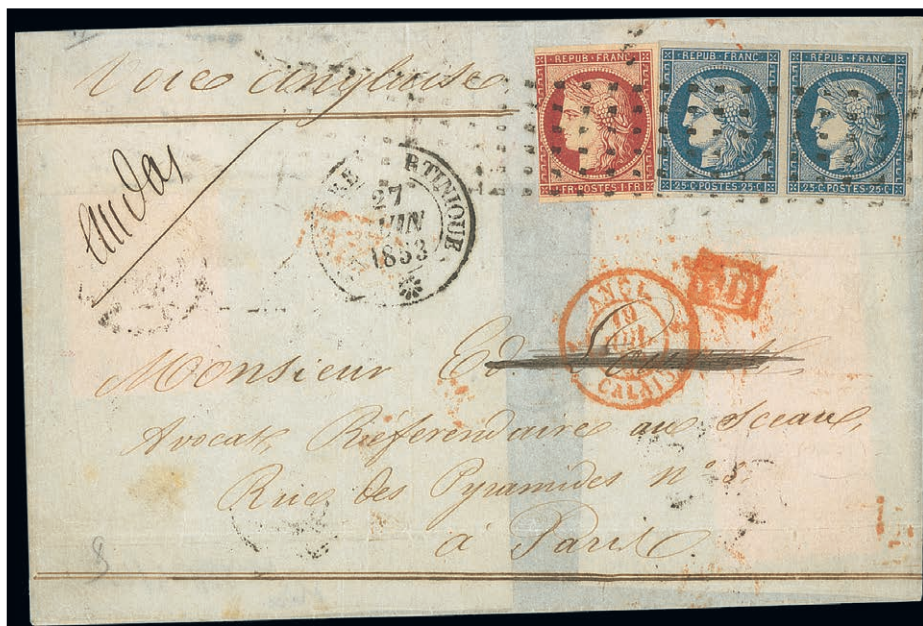 Voie anglaise
REPUB·FRANC·
1·FR·POSTES·1·FR
REPUB·FRANC·
25·C·POSTES·25·C
REPUB·FRANC·
25·C·POSTES·25·C
RTINIQUE
27
UIN
1853
ANGL.
19
CALAIS
Monsieur Ed
Avocat, Référendaire au Sceau,
Rue des Pyramides n°
à Paris.
8